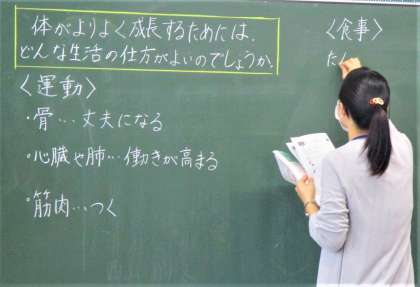 体がよりよく成長するためには、
どんな生活の仕方がよいのでしょうか。
〈運動〉
・骨…丈夫になる
・心臓や肺…働きが高まる
・筋肉…つく
〈食事〉
たん